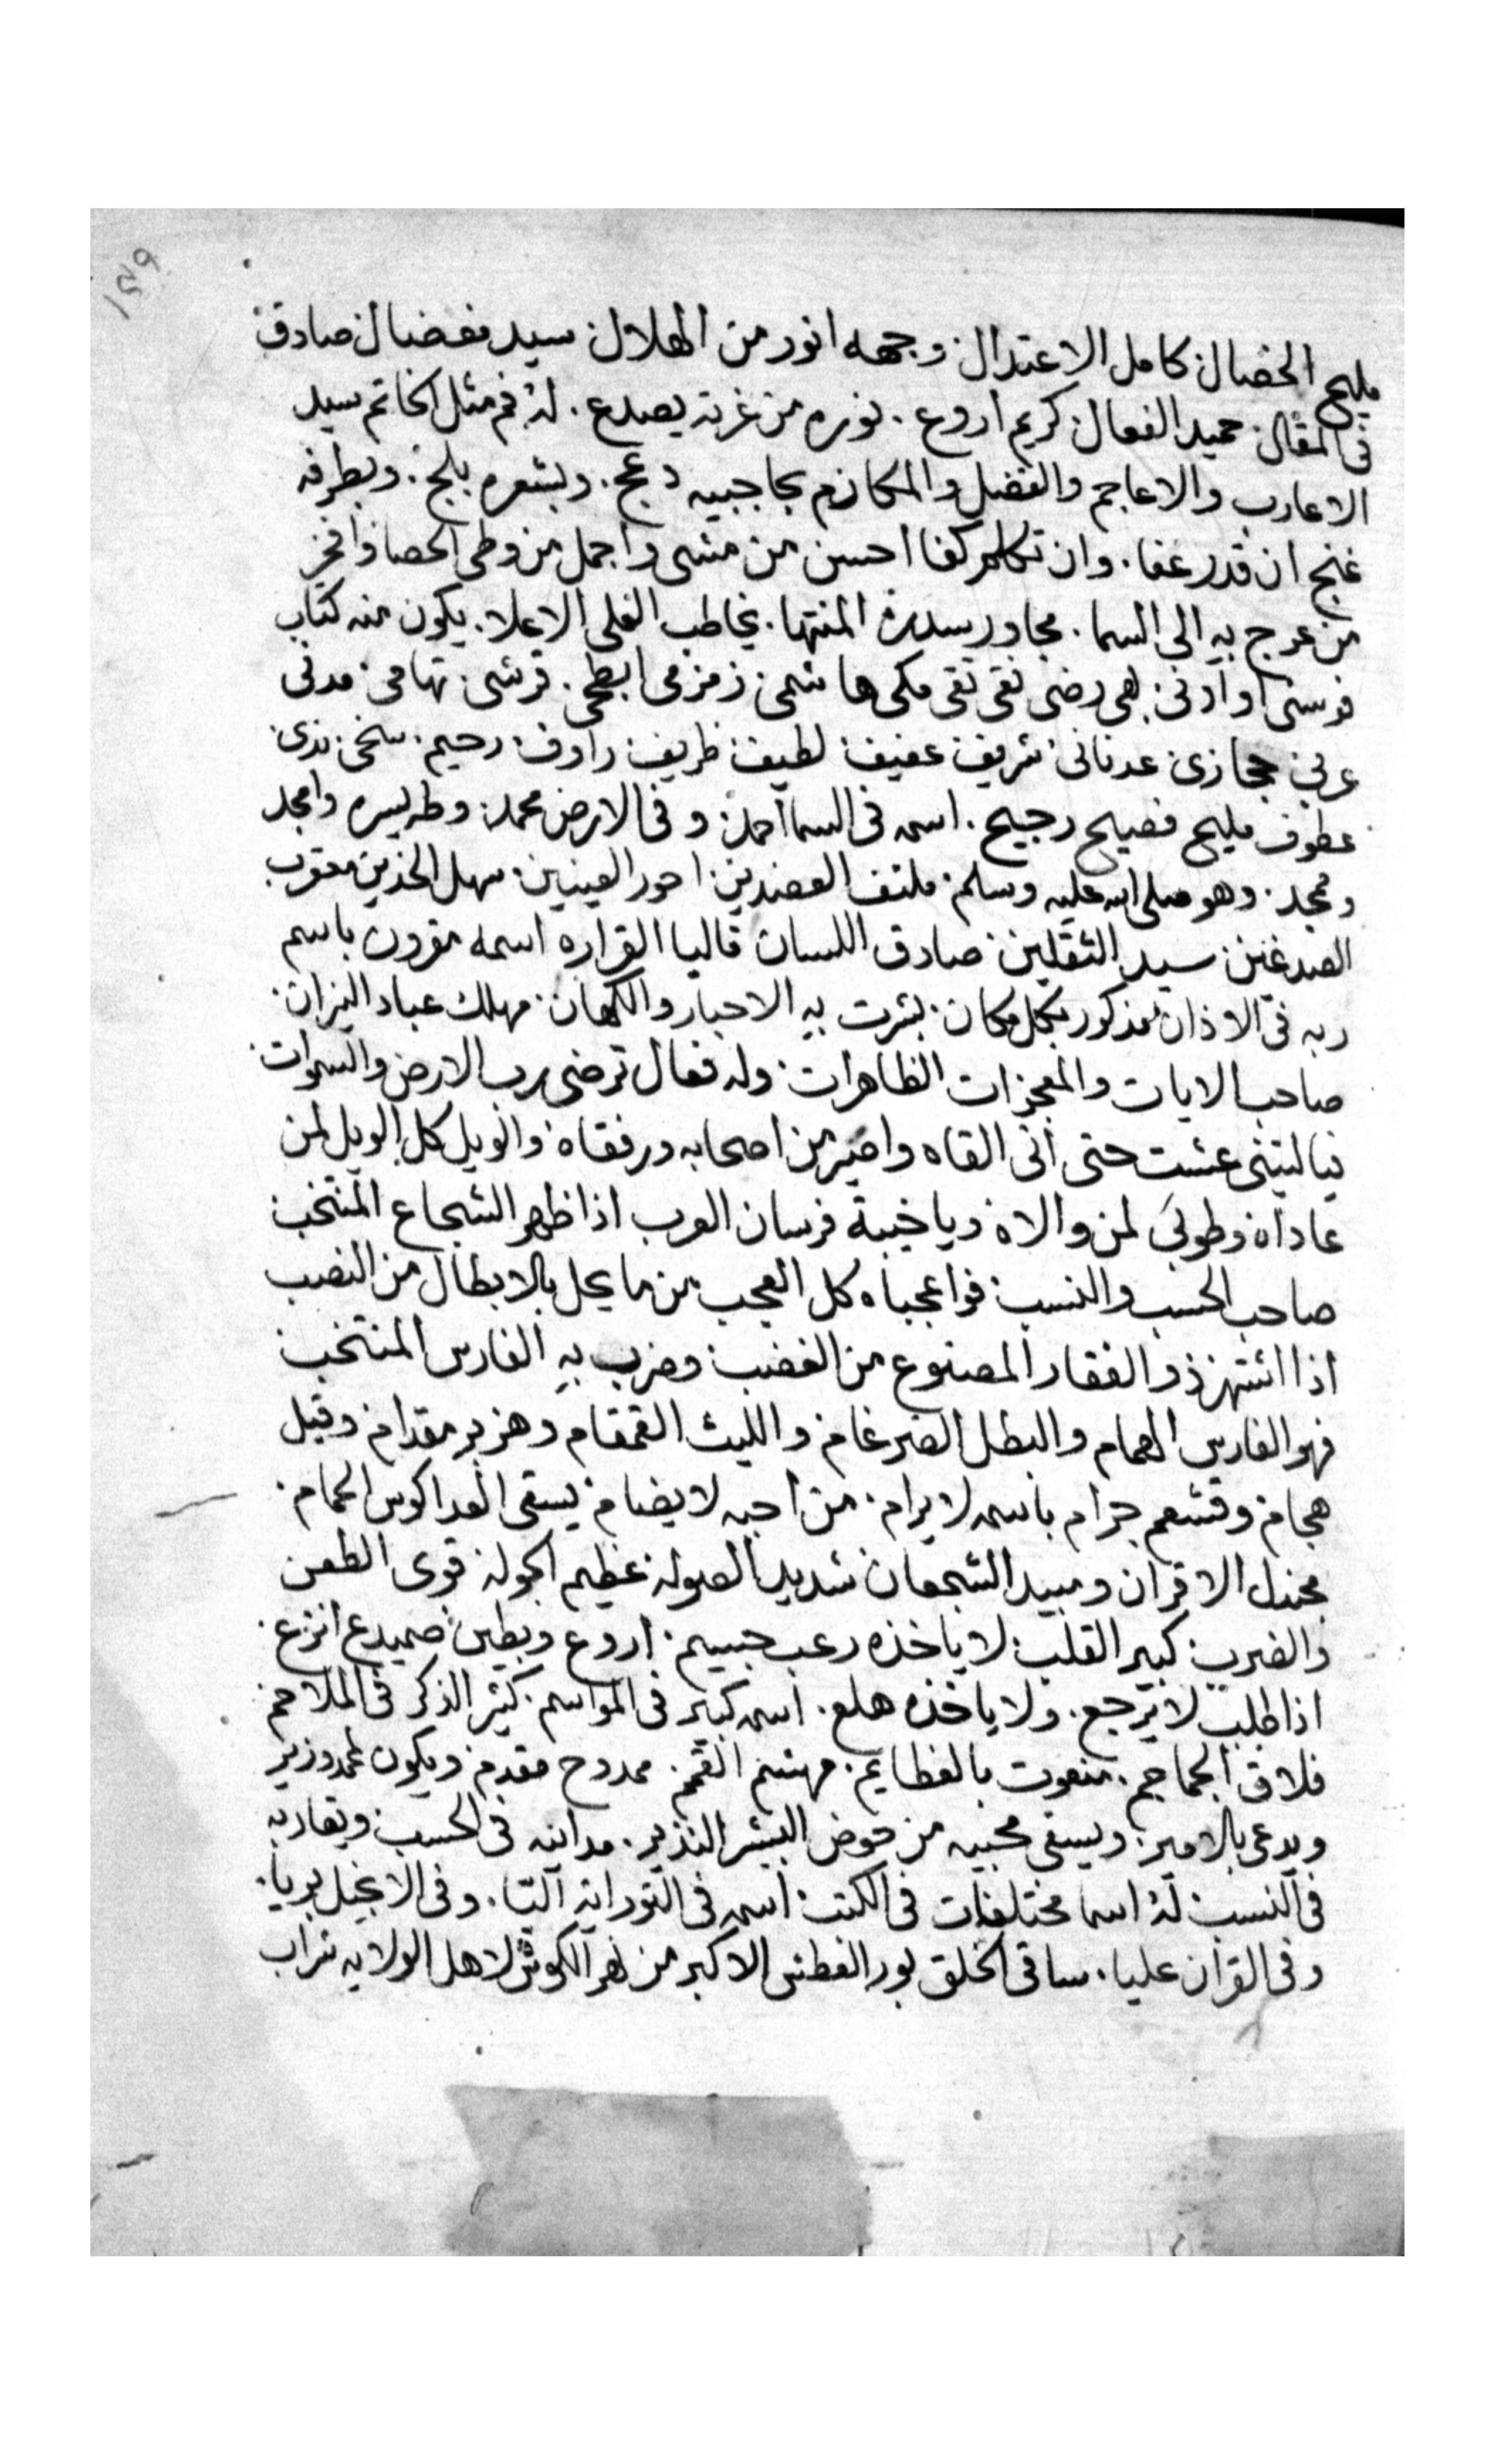 ١٣٩
مليح الخصال كامل الاعتدال وجهه انور من الهلال سيد مفضال صادق
فى المقال حميد الفعال كريم اروع. نوره من غرته يصدع. له فم مثل الخاتم سيد
الاعارب والاعاجم والفضل والمكارم بحاجبيه دعج. وبشعره بلج. وبطرفه
غنج ان قدر عفا. وان تكلم كفا احسن من مشى واجمل من وطى الحصا وافخر
من عرج به الى السما. مجاور سدرة المنتها. يخاطب العلى الاعلا. يكون منه كقاب
قوسين او ادنى بهى رضى نقى تقى مكى هاشمى زمزمى ابطحى. قرشى تهامى مدنى
عربى حجازى عدنانى شريف عفيف لطيف ظريف راوف رحيم سخى ندى
عطوف مليح فصيح رجيح. اسمه فى السما احمد وفى الارض محمد وطه ليسره وامجد
ومجد. وهو صلى الله عليه وسلم ملتف العضدين احور العينين سهل الخدين معقرب
الصدغين سيد الثقلين صادق اللسان قاليا القراره اسمه مقرون باسم
ربه فى الاذان مذكور بكل مكان بشرت به الاحبار والكهان مهلك عباد النيران
صاحب الايات والمعجزات الظاهرات وله فعال ترضى رب الارض والسموات
فيا ليتنى عشت حتى انى القاه واصير من اصحابه ورفقاه والويل كل الويل لمن
عاداه وطوبى لمن والاه وياخيبة فرسان العرب اذا ظهر الشجاع المنتخب
صاحب الحسب والنسب فواعجباه كل العجب من ما يحل بالابطال من النصب
اذا اشتهر ذو الفقار المصنوع من الغضب وضرب به الفارس المنتخب
فهو الفارس الهمام والبطل الضرغام والليث القمقام وهزبر مقدام وقيل
هجام وقشعم جرام باسه لا يرام من احبه لا يضام يسقى العدا كوس الحمام
مجندل الاقران ومبيد الشجعان شديد الصوله عظيم الجوله قوى الطعن
والضرب كبير القلب لا ياخذه رعب جسيم اروع وبطين صميدع انزع
اذا طلب لا يرجع. ولا ياخذه هلع. اسمه كبير فى المواسم كثير الذكر فى الملاحم
فلاق الجماجم. منعوت بالعظايم مهشم القمم. ممدوح مقدم ويكون لمحمد وزير
ويدعى بالامير ويسقى محبيه من حوض البشر النذير. مداينه فى الحسب ويقاربه
فى النسب له اسما مختلفات فى الكتب اسمه فى التوراية اليا. وفى الانجيل بريا.
وفى القران عليا. ساقى الخلق يوم العطش الاكبر من نهر الكوثر لاهل الولايه شراب